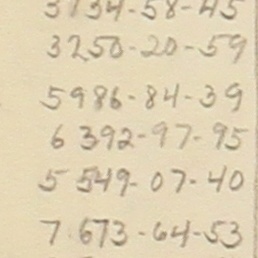 3734-58-45
3250-20-59
5986-84-39
6392-97-95
5549-07-40
7673-64-53